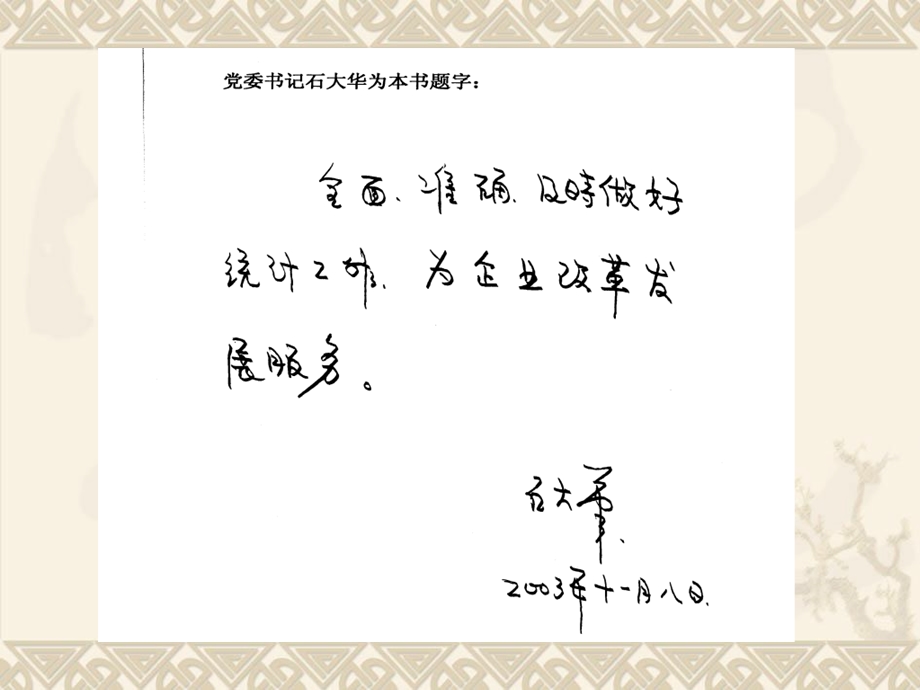 党委书记石大华为本书题字：
全面、准确、及時做好
统计工作，为企业改革发
展服务。
石大華
2003年十一月八日